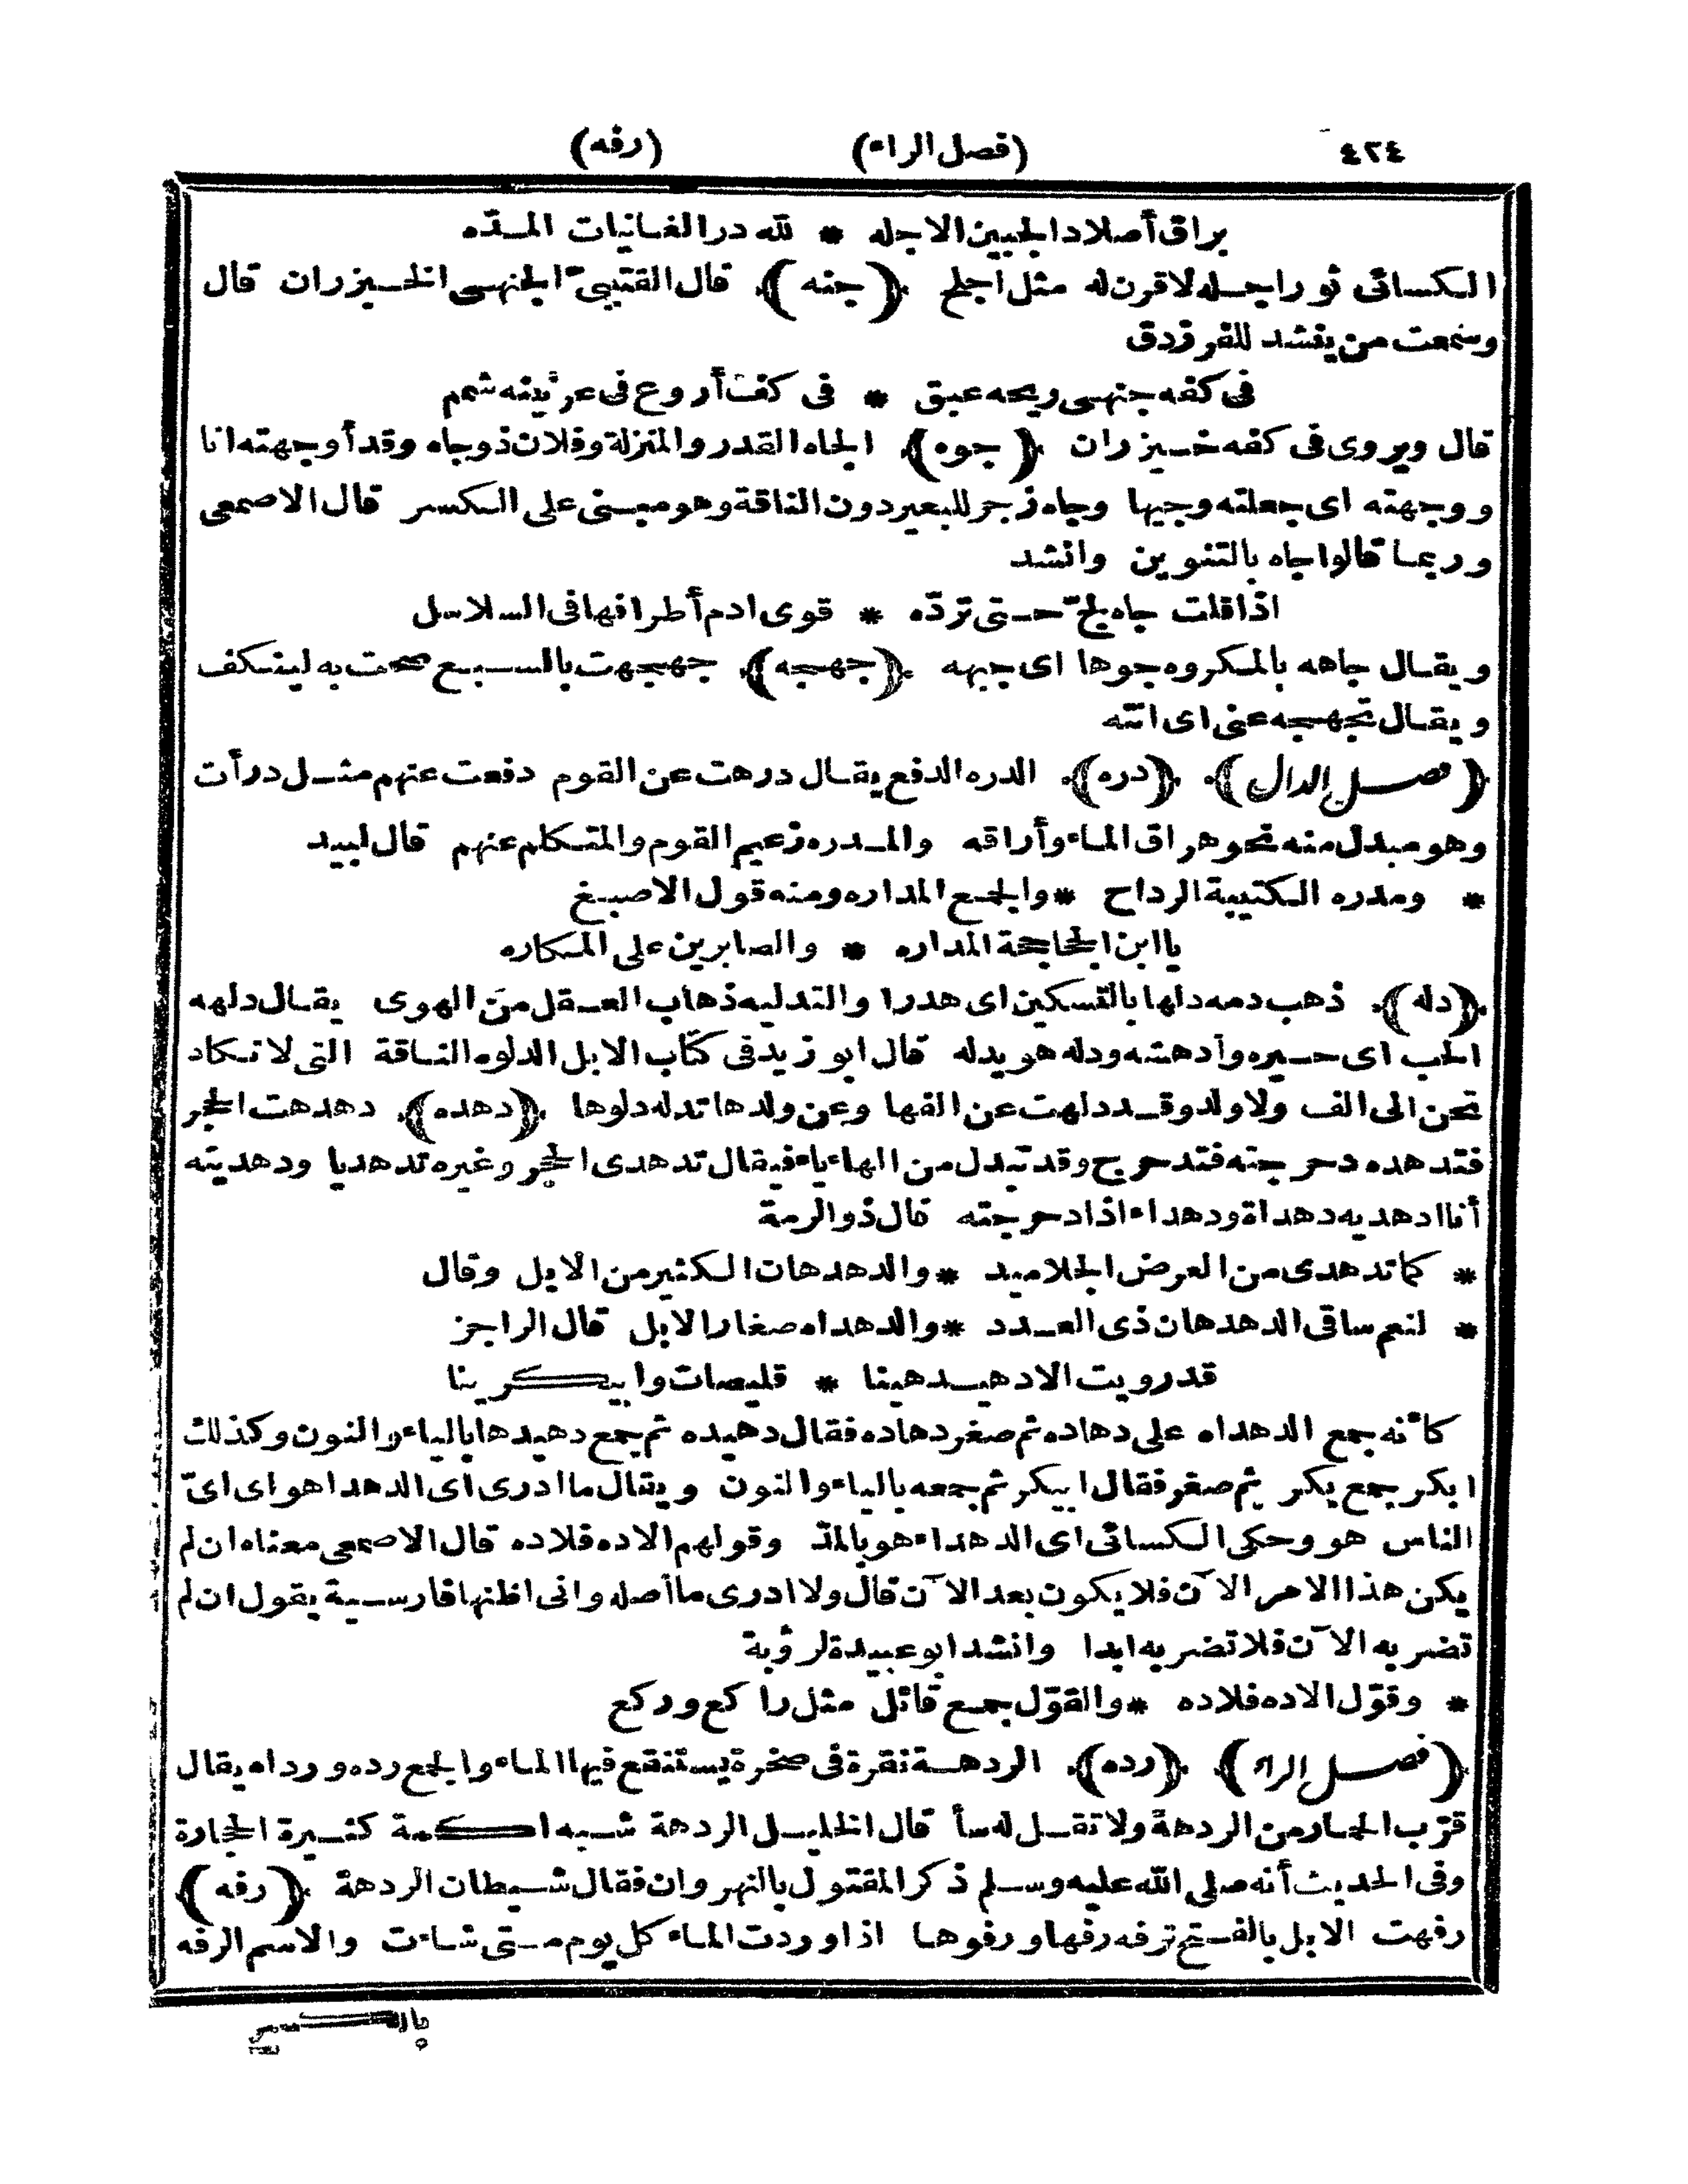 ٤٢٤ (فصل الراء) (رفه)
براق أصلاد الجبين الاجله * لله در الغانيات المدّه
الكسائى ثور اجله لا قرن له مثل اجلح (جنه) قال القتيبىّ الجنهى الخيزران قال
وسمعت من ينشد للفرزدق
فى كفه جنهى ريحه عبق * فى كف أروع فى عرنينه شمم
قال ويروى فى كفه خيزران (جوه) الجاه القدر والمنزلة وفلان ذو جاه وقد أوجهته انا
ووجهته اى جعلته وجيها وجاه زجر للبعير دون الناقة وهو مبنى على الكسر قال الاصمعى
وربما قالوا جاه بالتنوين وانشد
اذا قلت جاه لجّ حتى تردّه * قوى ادم أطرافها فى السلاسل
ويقال جاهه بالمكروه جوها اى جبهه (جهجه) جهجهت بالسبع صحت به لينكف
ويقال تجهجه عنى اى انته
(فصل الدال) (دره) الدره الدفع يقال درهت عن القوم دفعت عنهم مثل درأت
وهو مبدل منه نحو هراق الماء وأراقه والمدره زعيم القوم والمتكلم عنهم قال لبيد
* ومدره الكتيبة الرداح * والجمع المداره ومنه قول الاصبغ
يا ابن الجحاجحة المداره * والصابرين على المكاره
(دله) ذهب دمه دلها بالتسكين اى هدرا والتدليه ذهاب العقل من الهوى يقال دلهه
الحب اى حيره وأدهشه ودله هو يدله قال ابو زيد فى كتاب الابل الدلوه الناقة التى لا تكاد
تحن الى الف ولا ولد وقد دلهت عن الفها وعن ولدها تدله دلوها (دهده) دهدهت الحجر
فتدهده دحرجته فتدحرج وقد تبدل من الهاء ياء فيقال تدهدى الحجر وغيره تدهديا ودهديته
أنا ادهديه دهداة ودهداء اذا دحرجته قال ذو الرمة
* كما تدهدى من العرض الجلاميد * والدهدهان الكثير من الابل وقال
* لنعم ساقى الدهدهان ذى العدد * والدهداه صغار الابل قال الراجز
قد رويت الا دهيدهينا * قليصات وابيكرينا
كأنه جمع الدهداه على دهاده ثم صغر دهاده فقال دهيده ثم جمع دهيدها بالياء والنون وكذلك
ابكر جمع بكر ثم صغر فقال ابيكر ثم جمعه بالياء والنون ويقال ما ادرى اى الدهدا هو اى اىّ
الناس هو وحكى الكسائى اى الدهداء هو بالمدّ وقولهم الا ده فلا ده قال الاصمعى معناه ان لم
يكن هذا الامر الآن فلا يكون بعد الآن قال ولا ادرى ما أصله وانى اظنها فارسية يقول ان لم
تضربه الآن فلا تضربه ابدا وانشد ابو عبيدة لرؤبة
* وقوّل الا ده فلا ده * والقوّل جمع قائل مثل راكع وركع
(فصل الراء) (رده) الردهة نقرة فى صخرة يستنقع فيها الماء والجمع رده ورداه يقال
قرّب الحمار من الردهة ولا تقل له سأ قال الخليل الردهة شبه اكمة كثيرة الحجارة
وفى الحديث أنه صلى الله عليه وسلم ذكر المقتول بالنهروان فقال شيطان الردهة (رفه)
رفهت الابل بالفتح ترفه رفها ورفوها اذا وردت الماء كل يوم متى شاءت والاسم الرفه
بالكسر